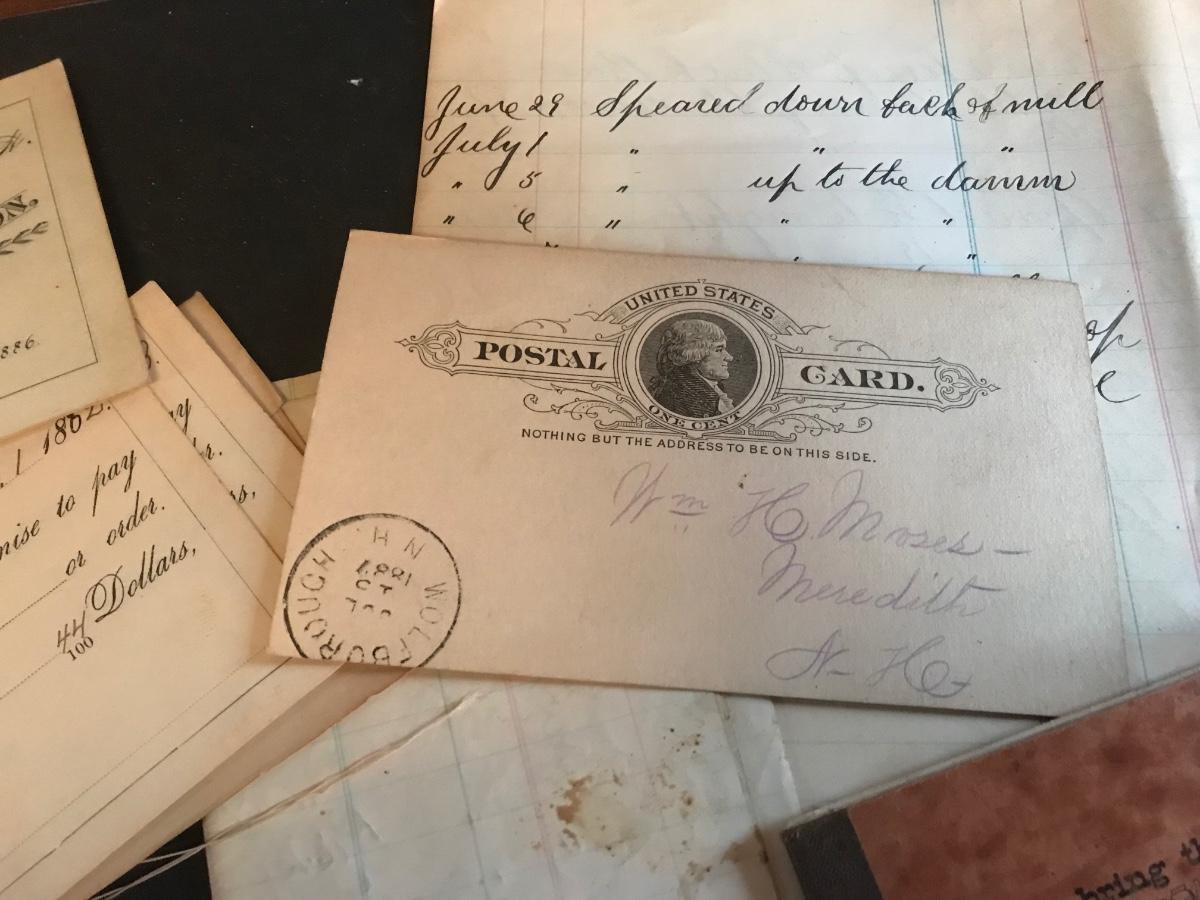 June 29 Speared down back of mill
July 1 " " "
" 5 " up to the damm
" 6 " " "
UNITED STATES
POSTAL CARD.
ONE CENT
NOTHING BUT THE ADDRESS TO BE ON THIS SIDE.
Wm H. Moses –
Meredith
N– H–
WOLFBOROUGH N H
1881
OCT
ON.
1886.
1882.
mise to pay
or order.
44/100 Dollars,
ay
r.
rs,
of
e
bring th